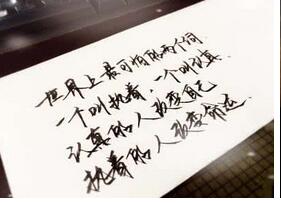 世界上最可怕的两个词
一个叫执着,一个叫认真
认真的人改变自己
执着的人改变命运